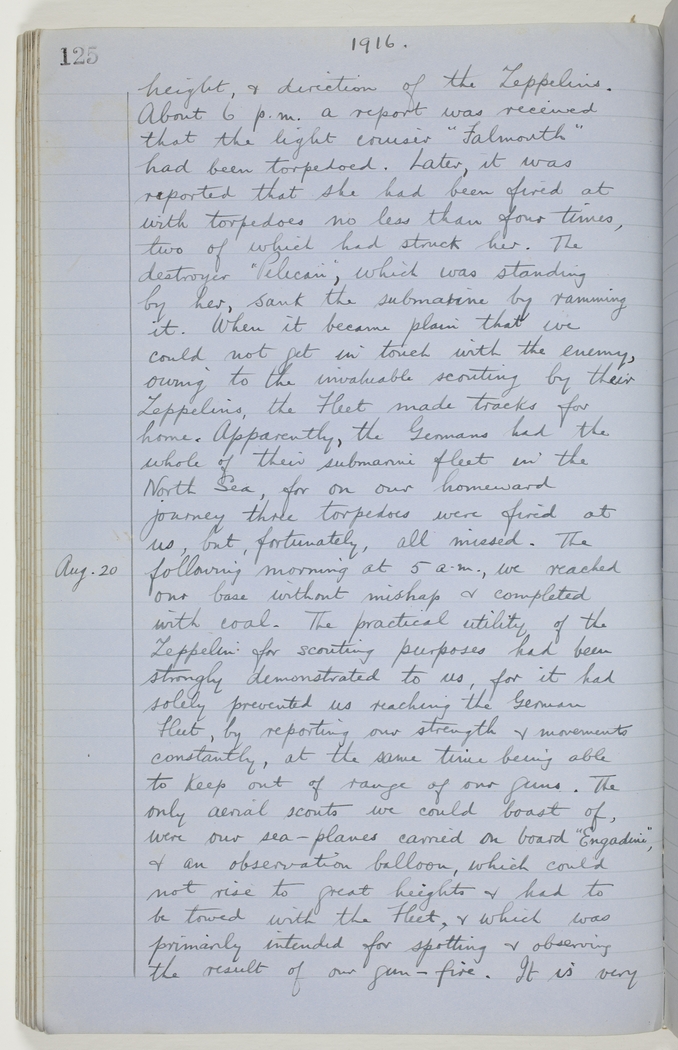 125
1916.
height, & direction of the Zeppelins.
About 6 p.m. a report was received
that the light cruiser "Falmouth"
had been torpedoed. Later, it was
reported that she had been fired at
with torpedoes no less than four times,
two of which had struck her. The
destroyer "Pelican", which was standing
by her, sank the submarine by ramming
it. When it became plain that we
could not get in touch with the enemy,
owing to the invaluable scouting by their
Zeppelins, the Fleet made tracks for
home. Apparently, the Germans had the
whole of their submarine fleet in the
North Sea, for on our homeward
journey three torpedoes were fired at
us, but, fortunately, all missed. The
Aug. 20 following morning at 5 a.m., we reached
our base without mishap & completed
with coal. The practical utility of the
Zeppelin for scouting purposes had been
strongly demonstrated to us, for it had
solely prevented us reaching the German
Fleet, by reporting our strength & movements
constantly, at the same time being able
to keep out of range of our guns. The
only aerial scouts we could boast of,
were our sea-planes carried on board "Engadine",
& an observation balloon, which could
not rise to great heights & had to
be towed with the Fleet, & which was
primarily intended for spotting & observing
the result of our gun-fire. It is very